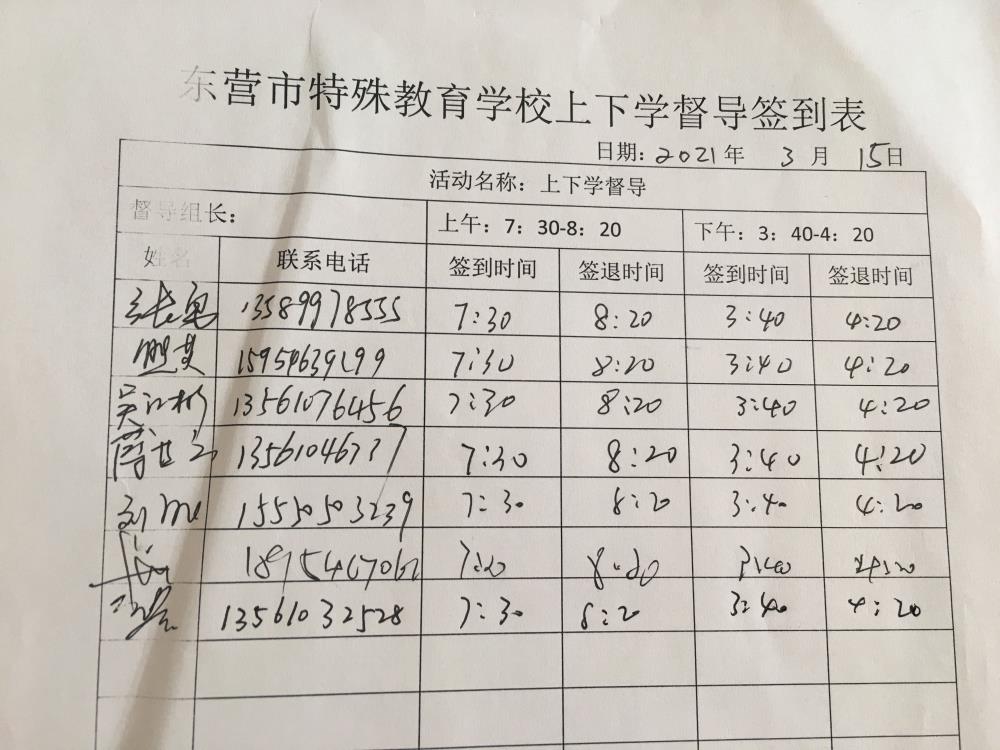 东营市特殊教育学校上下学督导签到表
日期：2021年 3月 15日
活动名称：上下学督导
督导组长： 上午：7：30-8：20 下午：3：40-4：20
姓名 联系电话 签到时间 签退时间 签到时间 签退时间
13589978555 7:30 8:20 3:40 4:20
7:30 8:20 3:40 4:20
吴江彬 13561076456 7:30 8:20 3:40 4:20
7:30 8:20 3:40 4:20
15550503239 7:30 8:20 3:40 4:20
8:20 3:40 4:20
13561032528 7:30 8:20 3:40 4:20